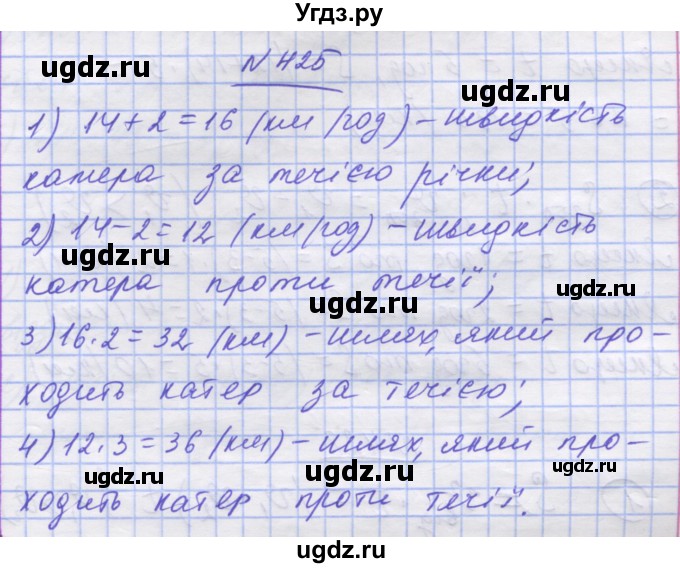 Угдз.ру
ugdz.ru ugdz.ru
N 425
1) 14+2=16 (км/год) – швидкість
катера за течією річки;
ugdz.ru ugdz.ru
2) 14-2=12 (км/год) – швидкість
катера проти течії;
ugdz.ru ugdz.ru
3) 16·2=32 (км) – шлях, який про-
ходить катер за течією;
4) 12·3=36 (км) – шлях, який про-
ugdz.ru ugdz.ru
ходить катер проти течії.
ugdz.ru ugdz.ru
ugdz.ru